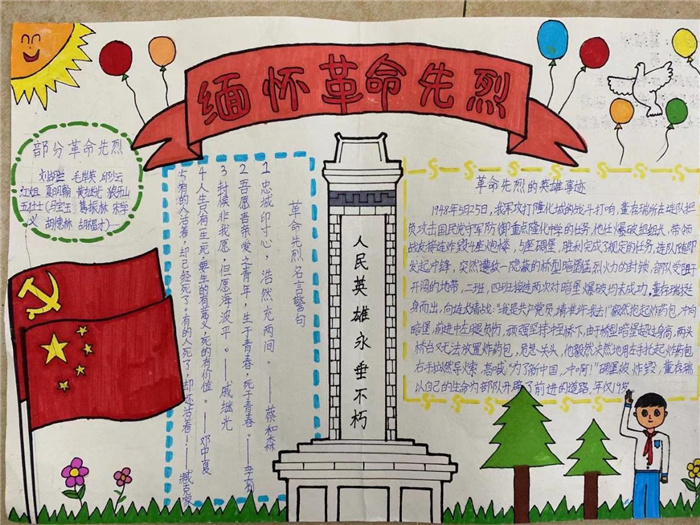 缅怀革命先烈
部分革命先烈
刘胡兰 毛岸英 邱少云
江姐 夏明翰 黄继光 狼牙山
五壮士(马宝玉 葛振林 宋学
义 胡德林 胡福才)…
革命先烈名言警句
1 忠诚印寸心,浩然充两间。——蔡和森
2 吾愿吾亲爱之青年,生于青春,死于青春。——李
3 封侯非我愿,但愿海波平。——戚继光
4 人生只有一生一死,要生的有意义,死的有价值。——邓中夏
5 有的人活着,却已经死了。有的人死了,却还活着!——臧克家
人民英雄永垂不朽
革命先烈的英雄事迹
1948年5月25日,我军攻打隆化城的战斗打响,董存瑞所在连队担
负攻击国民党守军防御重点隆化中学的任务,他任爆破组组长,带领
战友接连炸毁4座炮楼,5座碉堡,胜利完成了规定的任务。连队随即
发起冲锋,突然遭敌一隐蔽的桥型暗堡猛烈火力的封锁。部队受阻于
开阔的地带,二班、四班接连两次对暗堡爆破均未成功,董存瑞挺
身而出,向连长请战:"我是共产党员,请准许我去!"毅然抱起炸药包,冲向
暗堡,前进中左腿负伤,顽强坚持冲至桥下。由于桥型暗堡距地面过高,两头
桥台又无法放置炸药包,危急关头,他毅然决然地用左手托起炸药包
右手拉燃导火索,高喊:"为了新中国,冲啊!"碉堡被炸毁,董存瑞
以自己的生命为部队开辟了前进的道路,年仅19岁